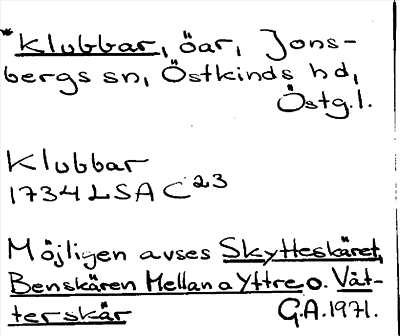 *Klubbar, öar, Jons-
bergs sn, Östkinds hd,
Östg.l.
Klubbar
1734 LSA C23
Möjligen avses Skytteskäret,
Benskären Mellan a Yttre o. Vät-
terskär G.A. 1971.